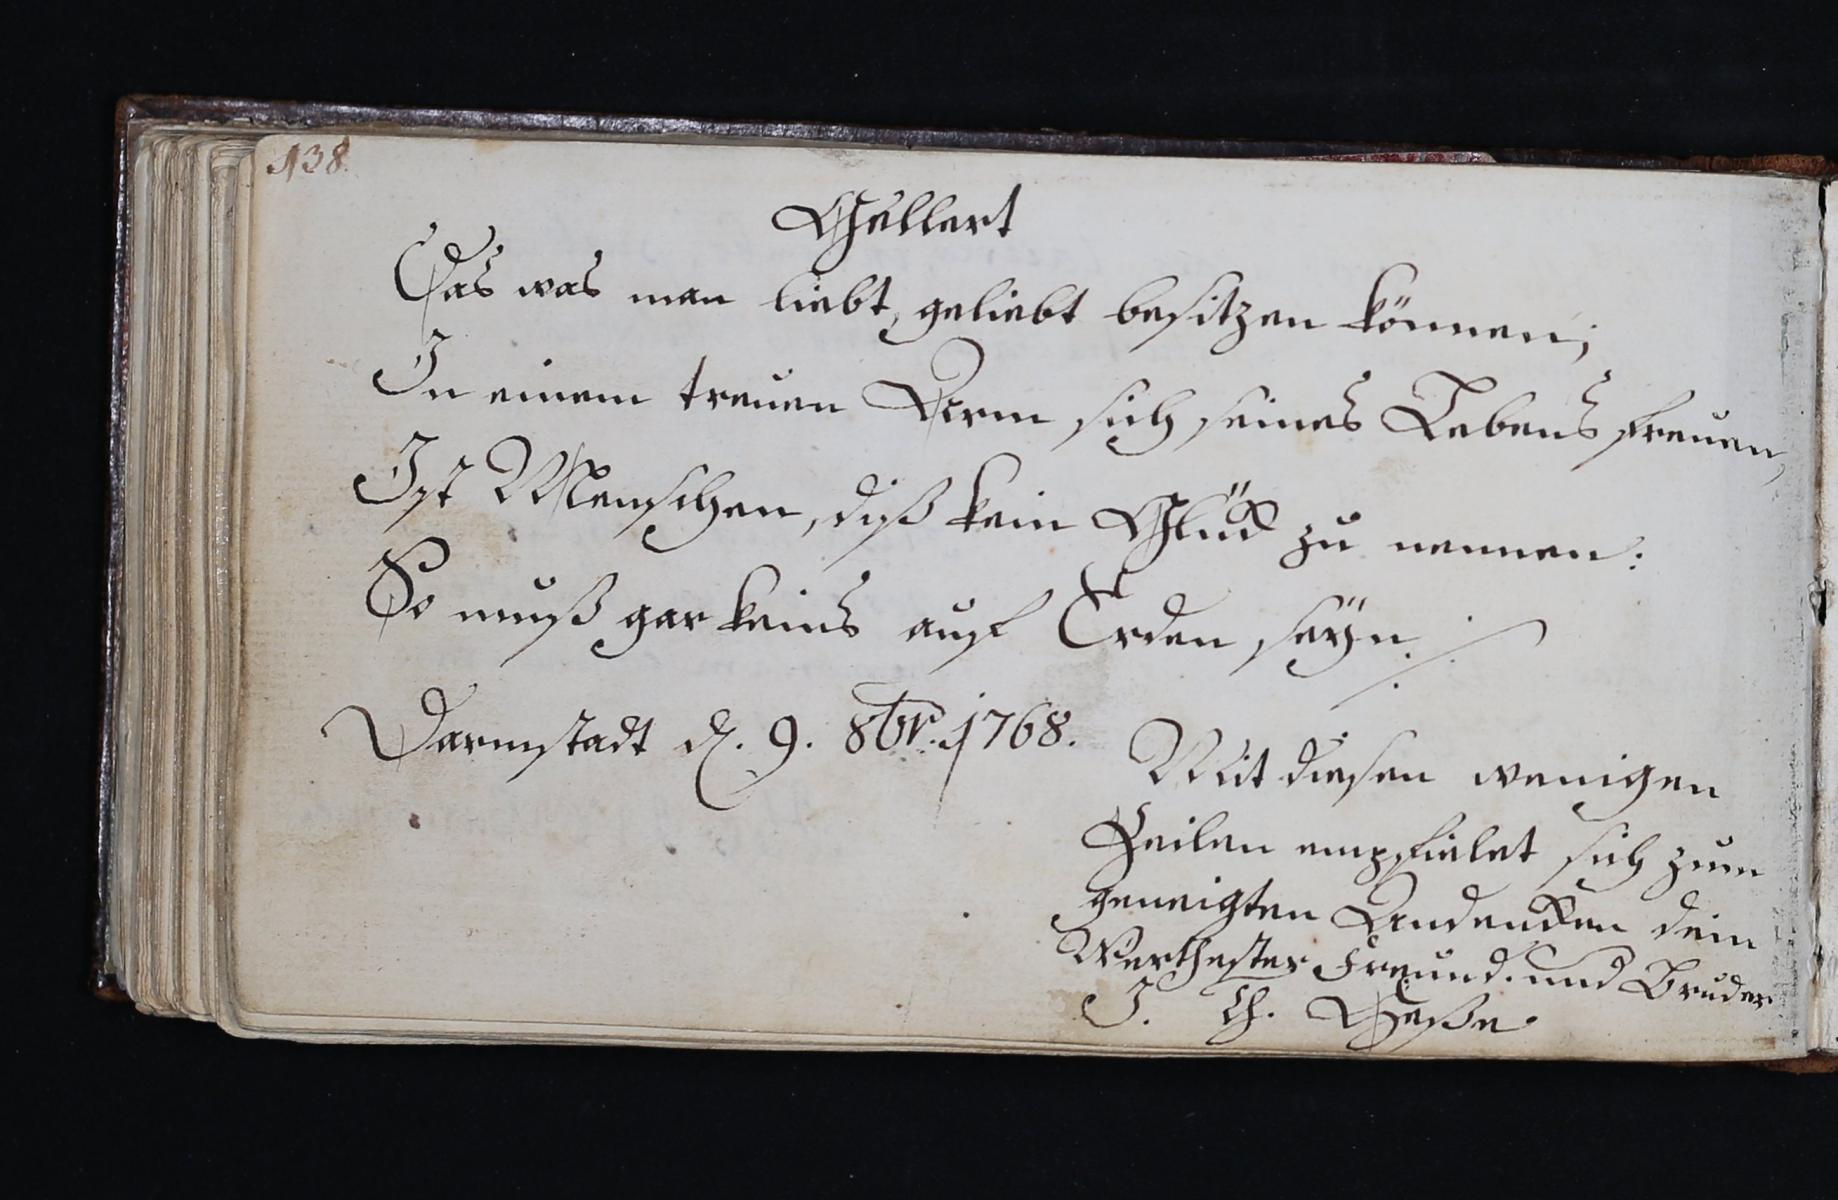 138.
Gellert
Das was man liebt, geliebt besitzen können;
In einem treuen Arm sich seines Lebens freuen,
Ist Menschen, diß kein Glück zu nennen:
So muß gar keins auf Erden seÿn ./.
Darmstadt d. 9. 8br. 1768.
Mit diesen wenigen
Zeilen empfielet sich zum
geneigten Andencken dein
Werthester Freund. und Bruder
J. Heße